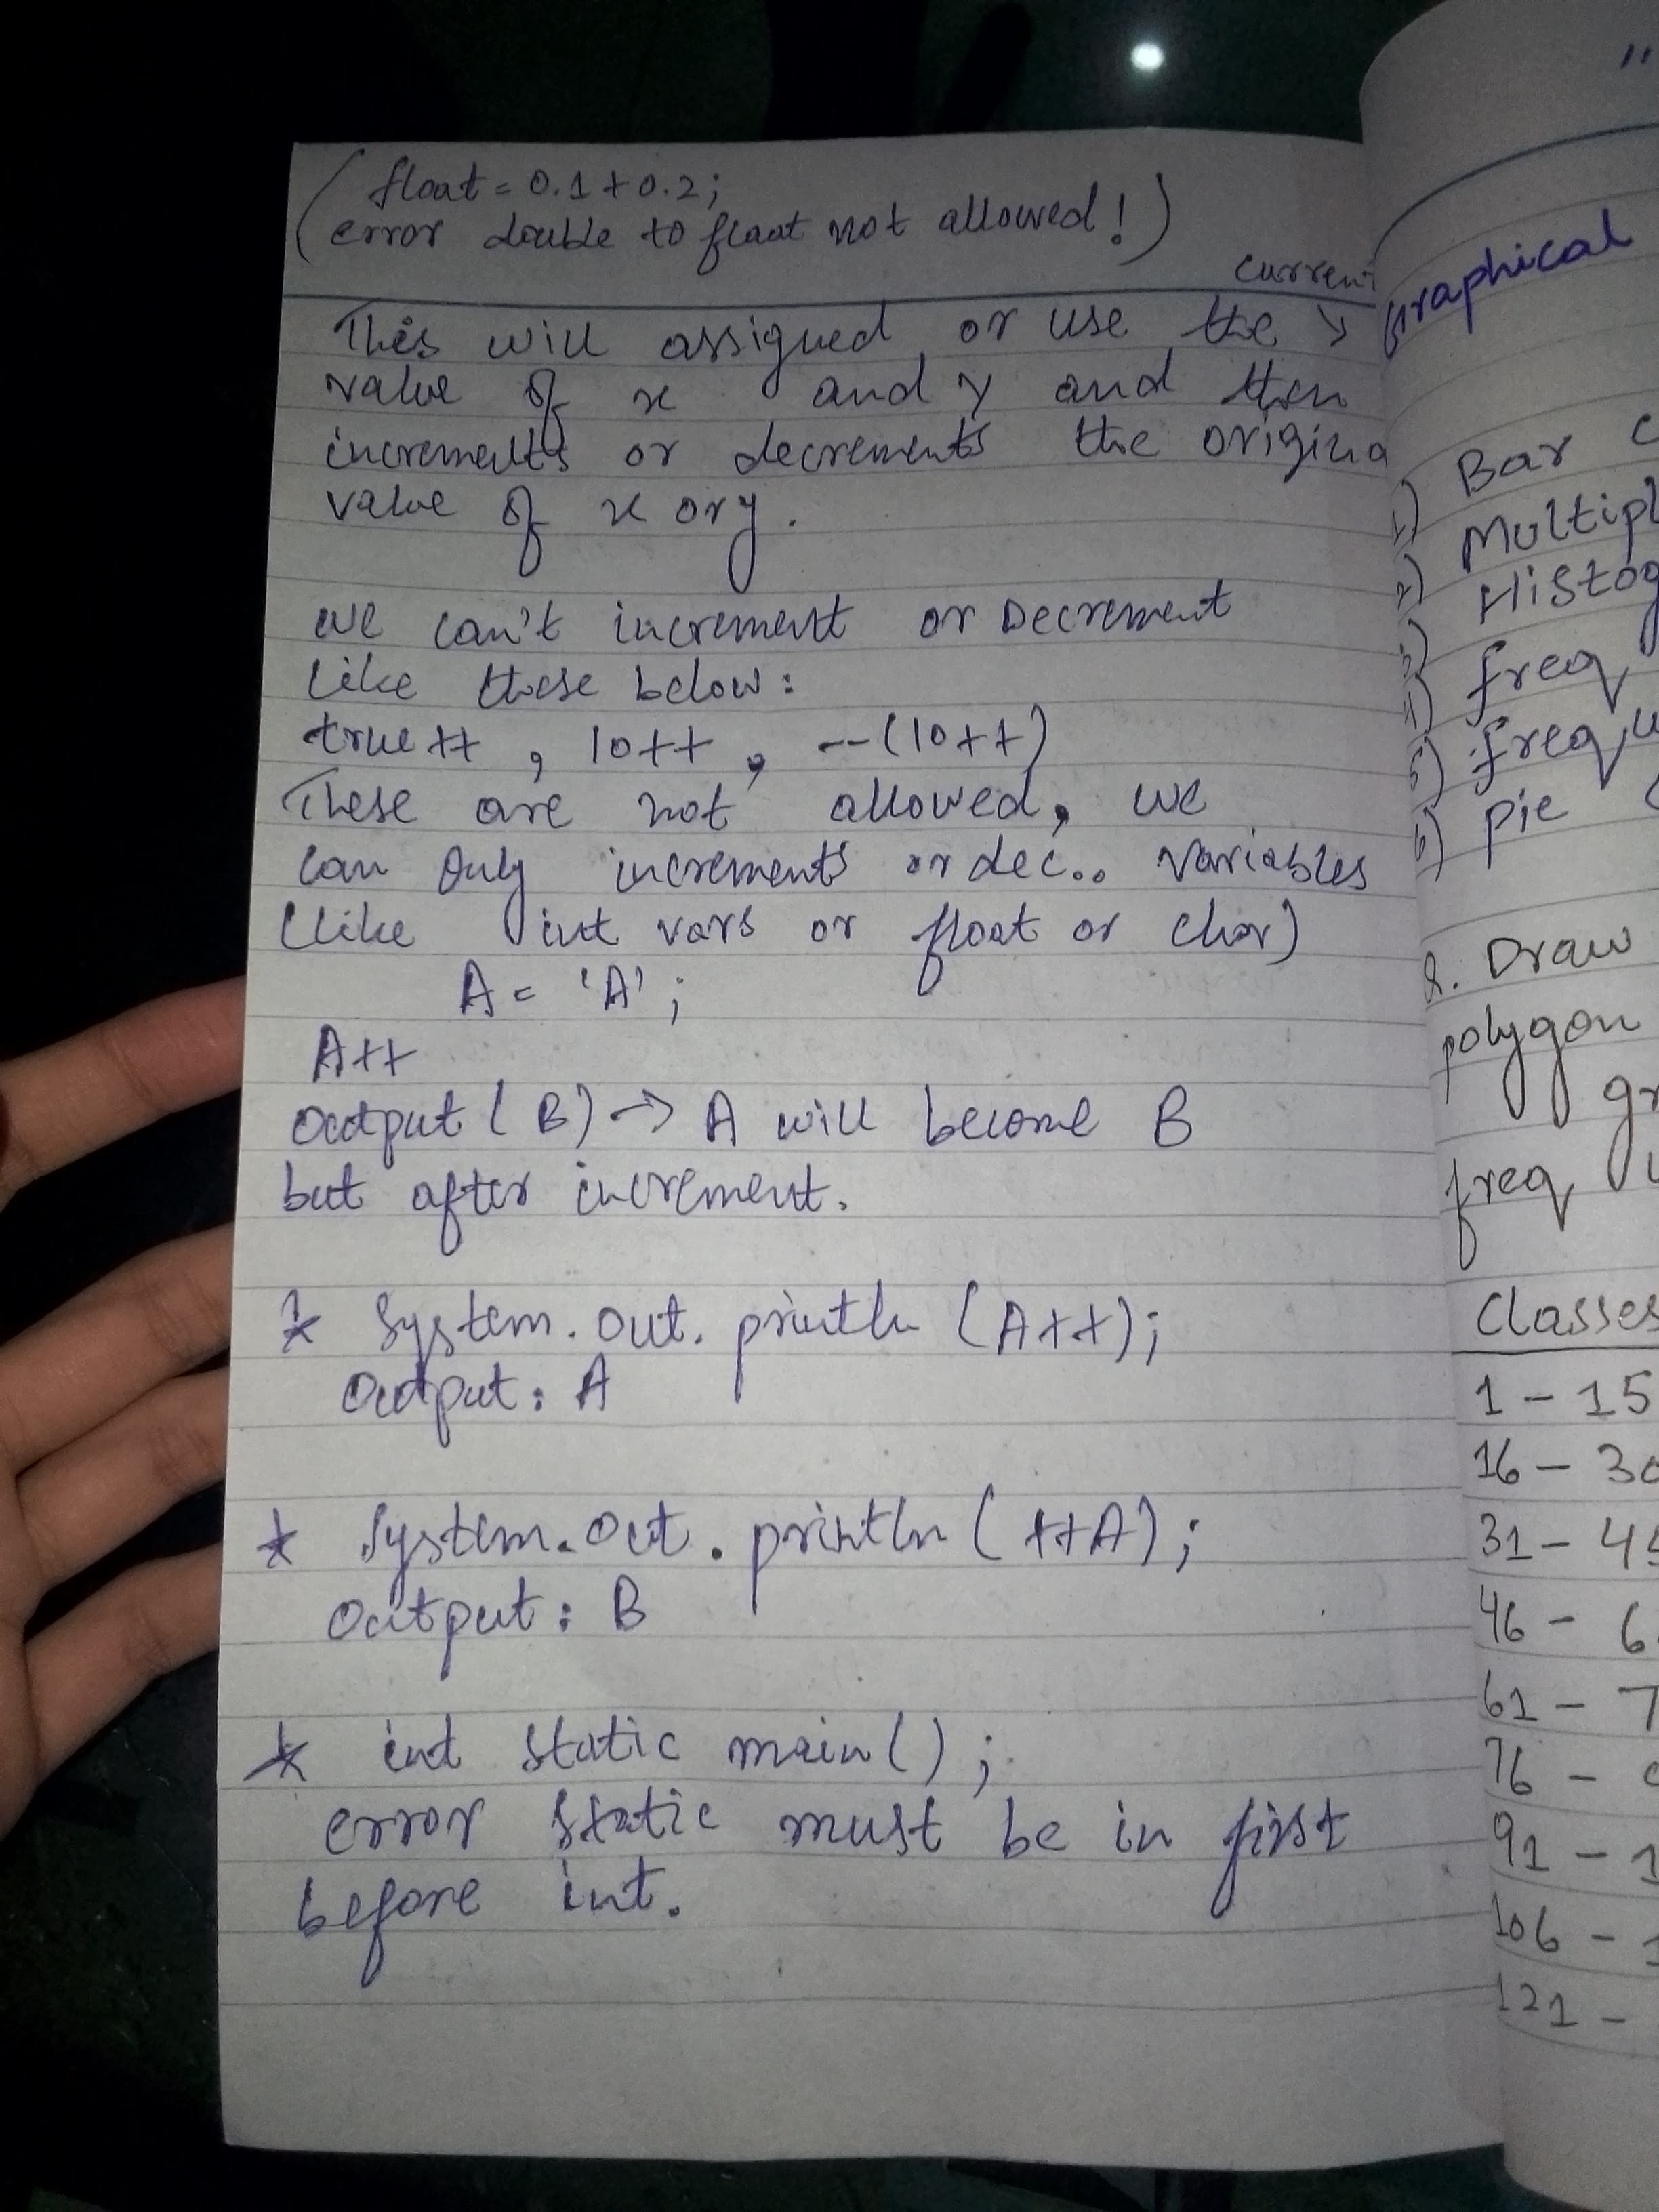 (float = 0.1 + 0.2;
error double to float not allowed!)
current
This will assigned or use the
value of x and y and then
increments or decrements the origina
value of x or y.
we can't increment or Decrement
like these below:
true++ , 10++ , --(10++)
These are not allowed, we
can only increments or dec.. variables
(like int vars or float or char)
A = 'A' ;
A++
output (B) → A will become B
but after increment.
* System.out.println (A++);
output: A
* System.out.println ( ++A);
output: B
* int static main() ;
error static must be in first
before int.
"
Graphical
1) Bar c
2) Multipl
3) Histog
4) freq
5) frequ
6) pie
Q. Draw
polygon
gr
freq
Classes
1 - 15
16 - 30
31 - 45
46 - 6
61 - 7
76 -
91 - 1
106 - 1
121 -